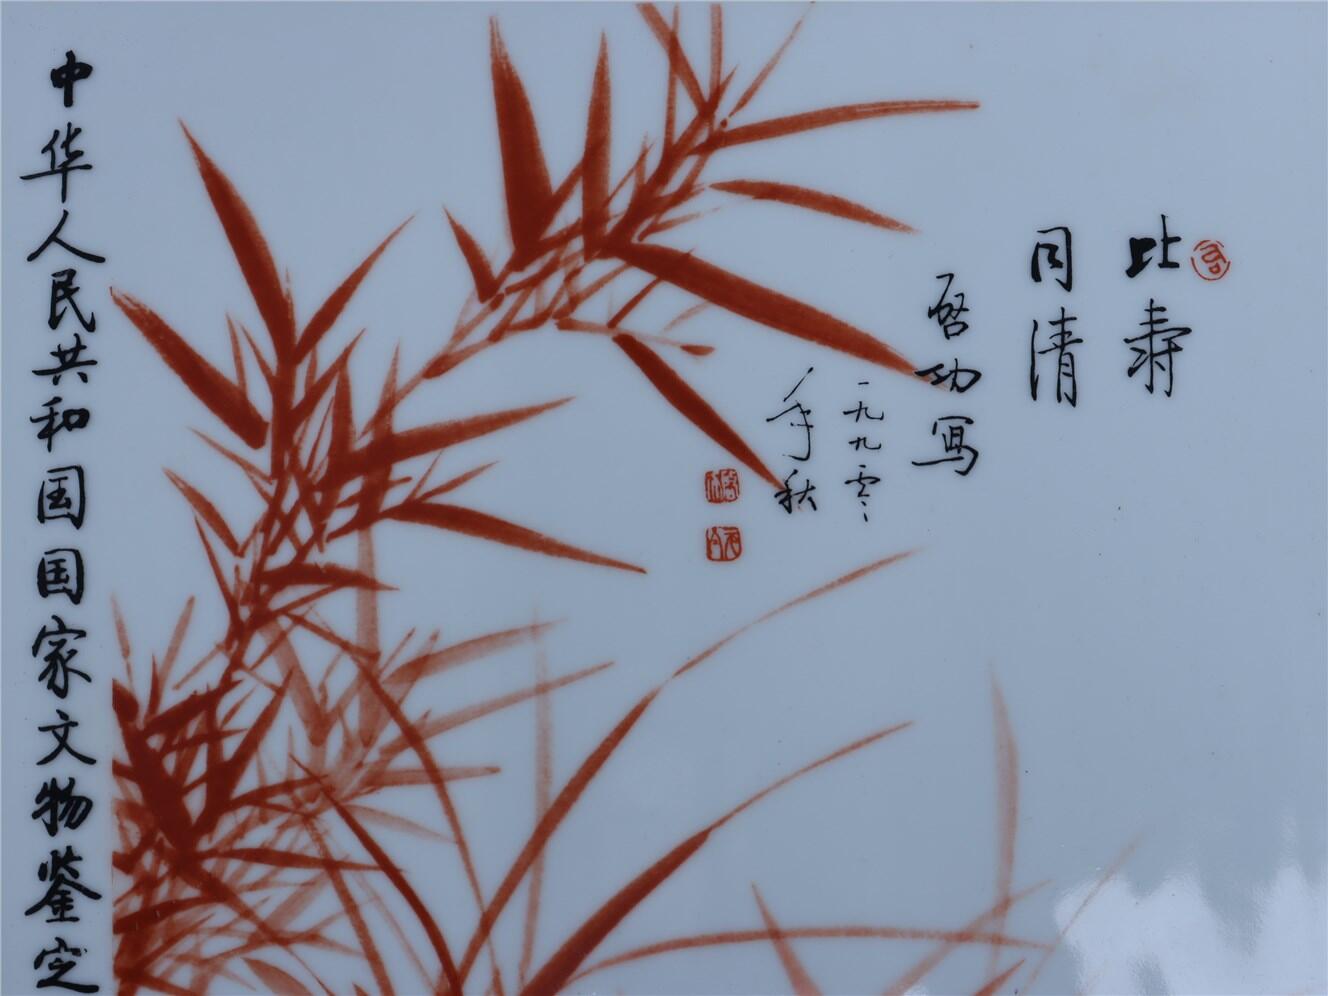 比寿
同清
启功写
一九九零
年秋
中华人民共和国国家文物鉴定